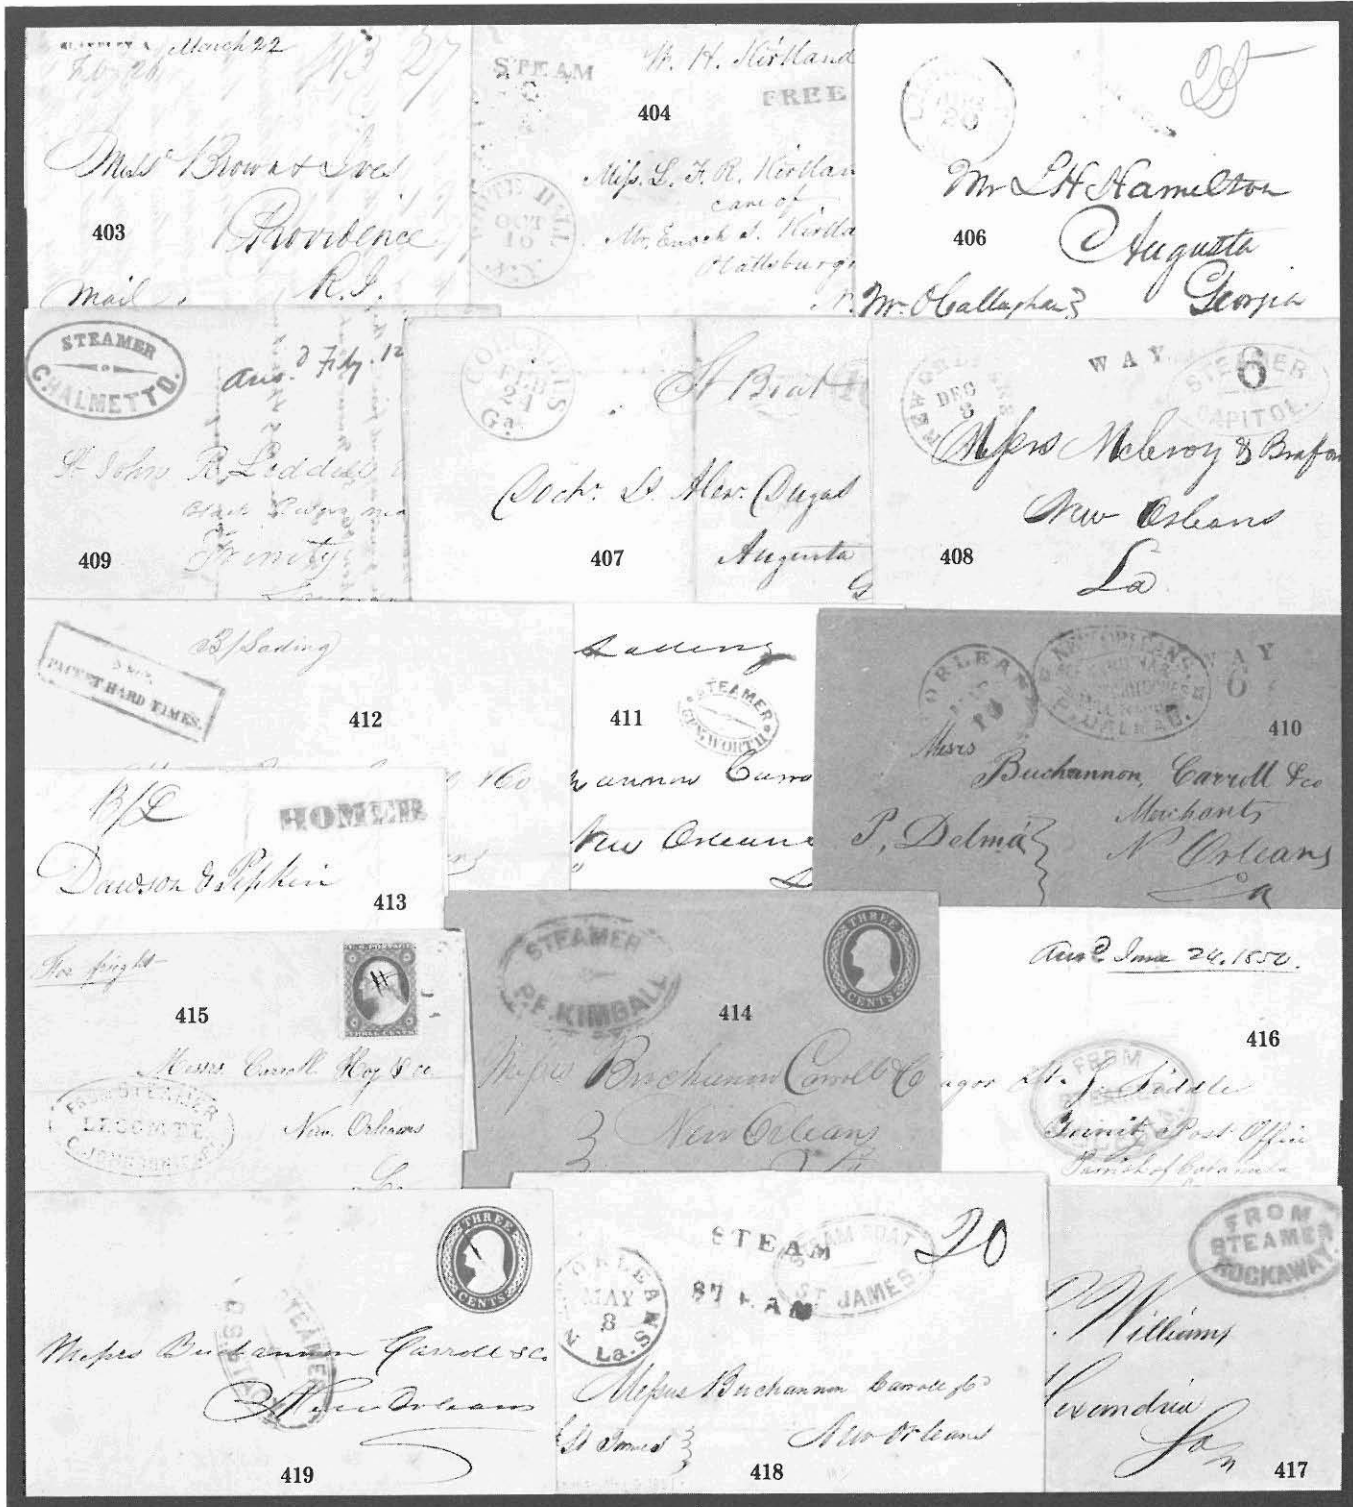 March 22
27
Messrs Brown & Ives
Providence
R.I.
Mail
403
STEAM
W. H. Kirtland
FREE
404
Miss. L. F. R. Kirtlan
care of
Mr. Enoch S. Kirtla
Plattsburg
WHITE HALL
OCT
16
N.Y.
25
20
Mr L H Hamilton
Augusta
Georgia
406
Mr. O Callaghan
STEAMER
CHALMETTO.
Ans.d Feby. 12
St John R. Liddell
Trinity
409
COLUMBUS
FEB
24
Ga.
St Boat
Doctr. L. Alexr. Dugas
Augusta
407
NEW ORLEANS
DEC
8
WAY
6
STEAMER
CAPITOL.
Messrs McIlroy & Bradfor
New Orleans
La
408
B/Lading
PACKET HARD TIMES.
412
& Co
Lading
STEAMER
GEN. WORTH
411
annon Carro
New Orleans
ORLEAN
WAY
6
410
Messrs
Buchannon, Carroll & co
Merchants
P. Delma
N Orleans
La
B/L
HOMER
Dawson & Pipkin
413
For freight
U.S. POSTAGE
THREE CENTS
415
Messrs Carroll Hoy & co
New Orleans
FROM STEAMER
LECOMTE.
STEAMER
P.F. KIMBALL
THREE
CENTS
414
Messrs Buchannon Carroll & Co
New Orleans
Ansd. June 24. 1850.
416
FROM
J. Liddle
Trinity Post Office
Parish of Catahoula
THREE
CENTS
STEAMER
Messrs Buchannon Carroll & Co.
New Orleans
419
STEAM
STEAM
STEAM BOAT
ST. JAMES
20
N. ORLEANS
MAY
8
La.
Messrs Buchannon Carroll & Co
St James
New Orleans
418
FROM
STEAMER
ROCKAWAY.
Williams
lexandria
La
417